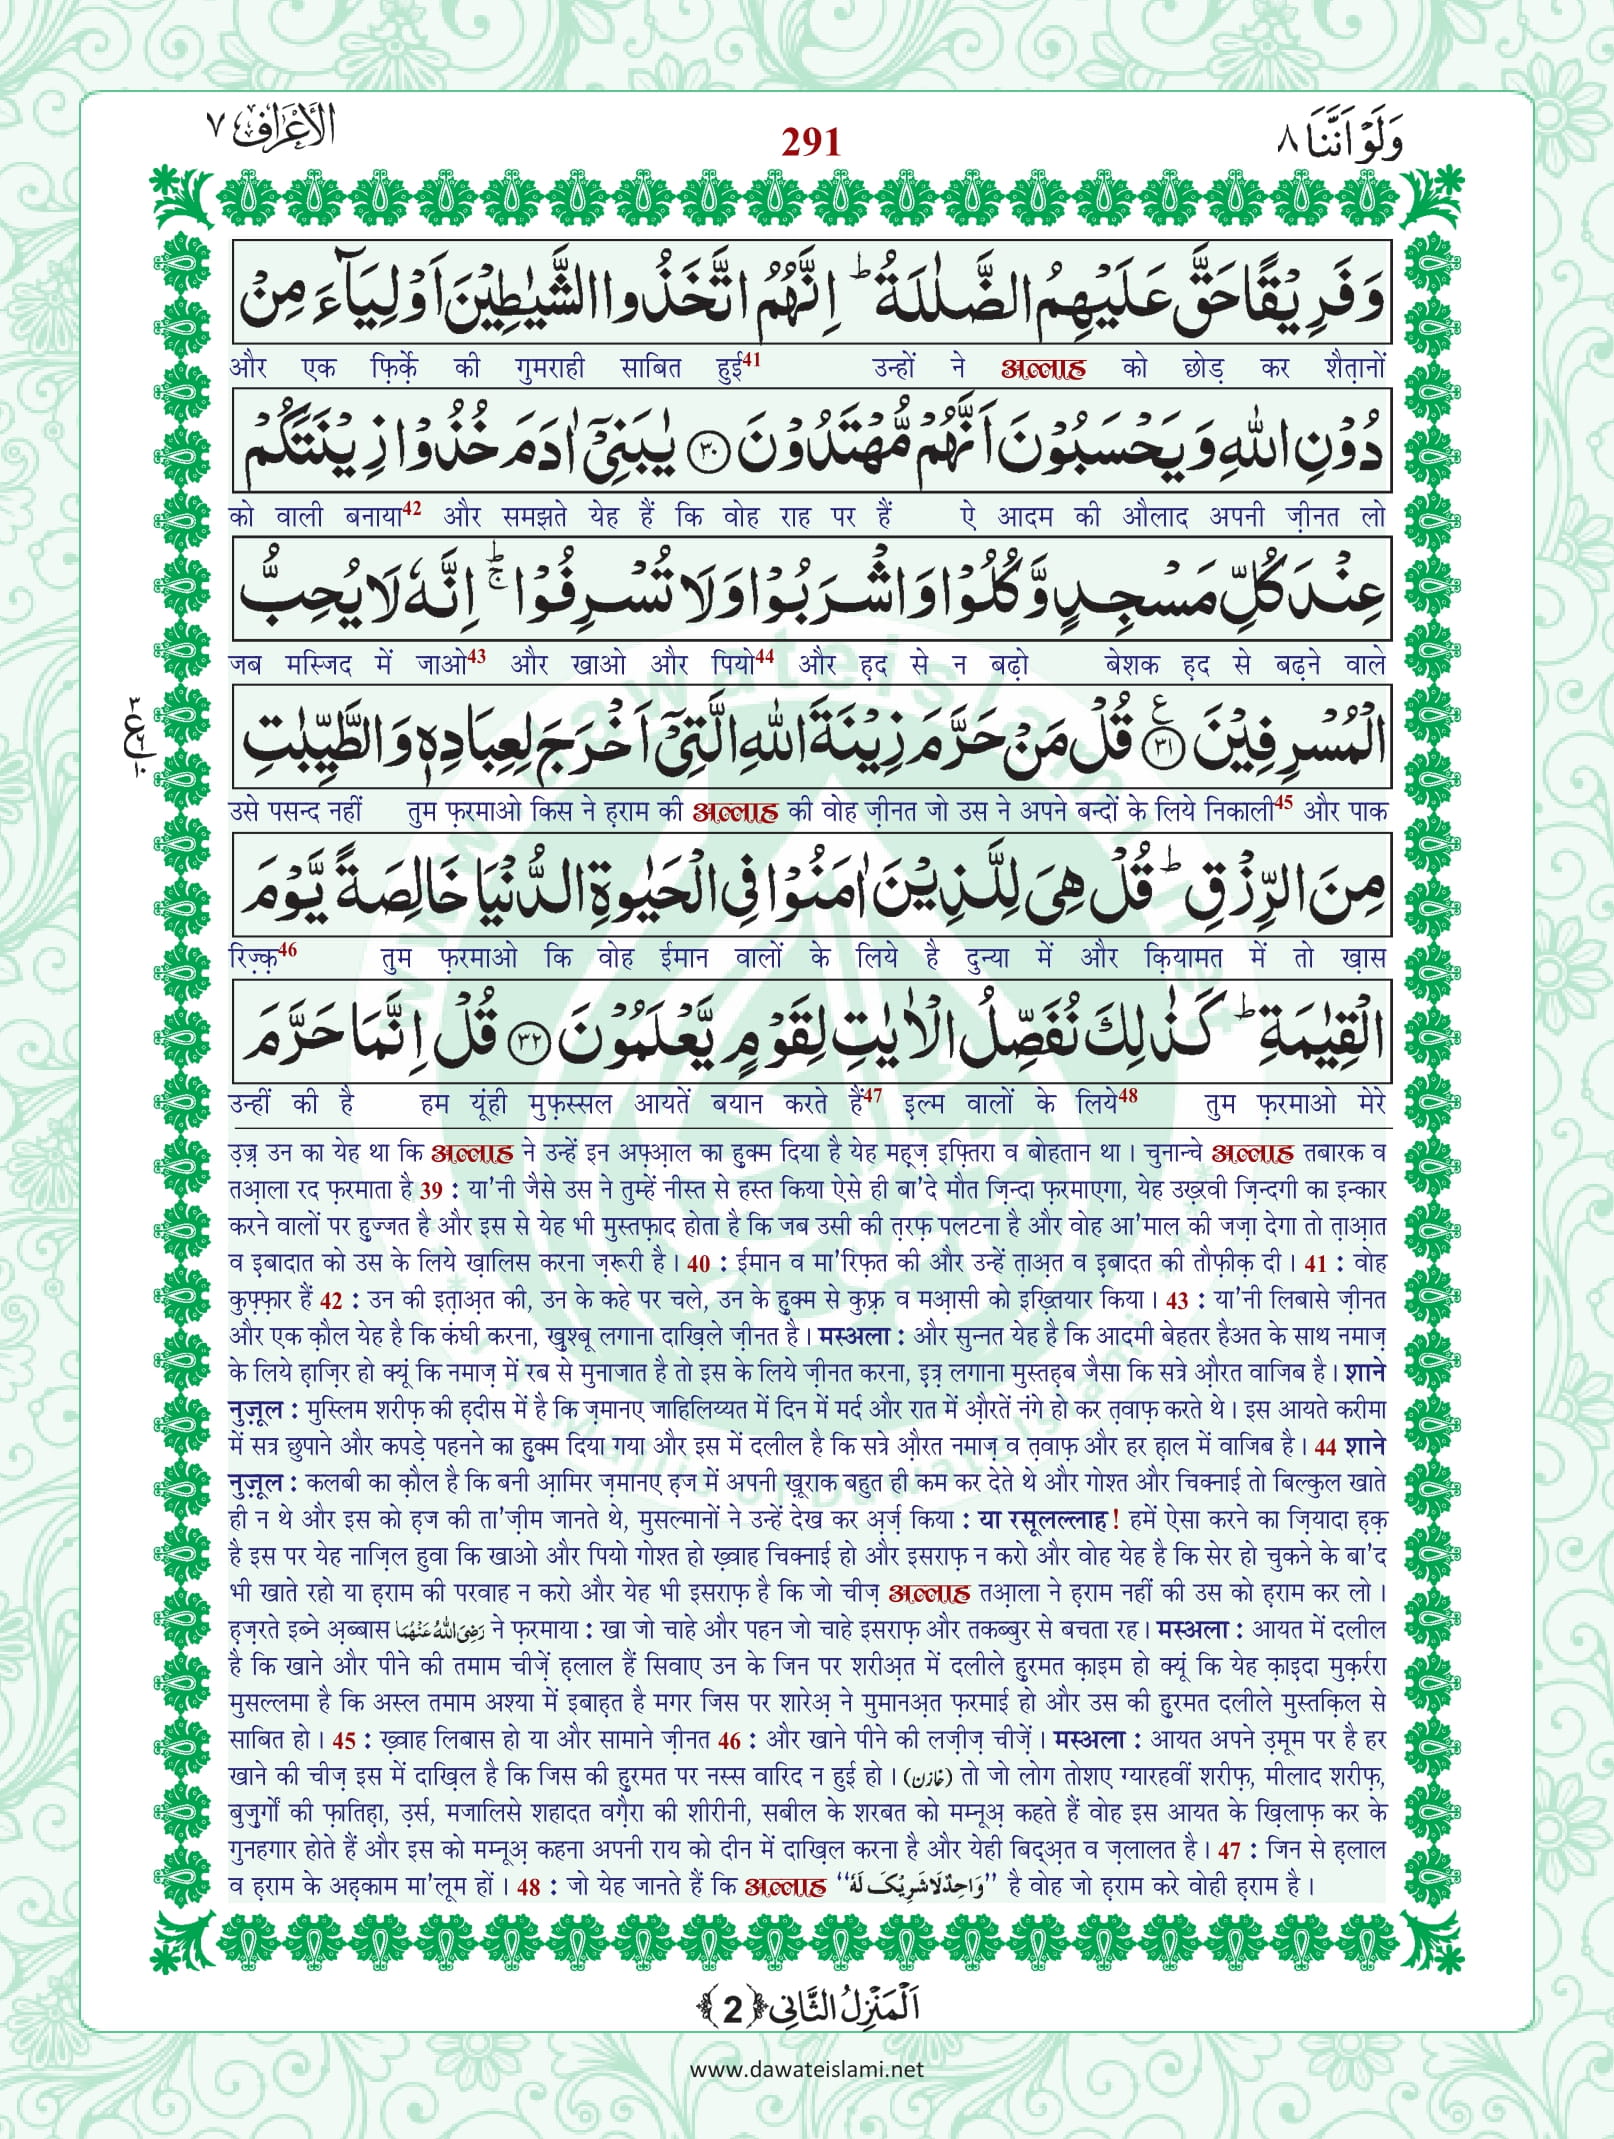 وَلَوْ اَنَّنَا ٨
291
الْاَعْرَاف ٧
وَفَرِيْقًا حَقَّ عَلَيْهِمُ الضَّلٰلَةُ ؕ اِنَّهُمُ اتَّخَذُوا الشَّيٰطِيْنَ اَوْلِيَآءَ مِنْ
और एक फ़िर्क़े की गुमराही साबित हुई41 उन्हों ने अल्लाह को छोड़ कर शैत़ानों
دُوْنِ اللّٰهِ وَ يَحْسَبُوْنَ اَنَّهُمْ مُّهْتَدُوْنَ ﴿٣٠﴾ يٰبَنِيْۤ اٰدَمَ خُذُوْا زِيْنَتَكُمْ
को वाली बनाया42 और समझते येह हैं कि वोह राह पर हैं ऐ आदम की औलाद अपनी ज़ीनत लो
عِنْدَ كُلِّ مَسْجِدٍ وَّ كُلُوْا وَ اشْرَبُوْا وَ لَا تُسْرِفُوْا ۚؕ اِنَّهٗ لَا يُحِبُّ
जब मस्जिद में जाओ43 और खाओ और पियो44 और ह़द से न बढ़ो बेशक ह़द से बढ़ने वाले
الْمُسْرِفِيْنَ ﴿٣١﴾ ع قُلْ مَنْ حَرَّمَ زِيْنَةَ اللّٰهِ الَّتِيْۤ اَخْرَجَ لِعِبَادِهٖ وَ الطَّيِّبٰتِ
٣ ع ٦ ١٠
उसे पसन्द नहीं तुम फ़रमाओ किस ने ह़राम की अल्लाह की वोह ज़ीनत जो उस ने अपने बन्दों के लिये निकाली45 और पाक
مِنَ الرِّزْقِ ؕ قُلْ هِيَ لِلَّذِيْنَ اٰمَنُوْا فِي الْحَيٰوةِ الدُّنْيَا خَالِصَةً يَّوْمَ
रिज़्क़46 तुम फ़रमाओ कि वोह ईमान वालों के लिये है दुन्या में और क़ियामत में तो ख़ास
الْقِيٰمَةِ ؕ كَذٰلِكَ نُفَصِّلُ الْاٰيٰتِ لِقَوْمٍ يَّعْلَمُوْنَ ﴿٣٢﴾ قُلْ اِنَّمَا حَرَّمَ
उन्हीं की है हम यूंही मुफ़स्सल आयतें बयान करते हैं47 इल्म वालों के लिये48 तुम फ़रमाओ मेरे
उज़्र उन का येह था कि अल्लाह ने उन्हें इन अफ़्आ़ल का ह़ुक्म दिया है येह मह़्ज़ इफ़्तिरा व बोहतान था। चुनान्चे अल्लाह तबारक व
तआ़ला रद फ़रमाता है 39 : या'नी जैसे उस ने तुम्हें नीस्त से हस्त किया ऐसे ही बा'दे मौत ज़िन्दा फ़रमाएगा, येह उख़्रवी ज़िन्दगी का इन्कार
करने वालों पर हुज्जत है और इस से येह भी मुस्तफ़ाद होता है कि जब उसी की त़रफ़ पलटना है और वोह आ'माल की जज़ा देगा तो त़ाआ़त
व इबादात को उस के लिये ख़ालिस करना ज़रूरी है। 40 : ईमान व मा'रिफ़त की और उन्हें त़ाअ़त व इबादत की तौफ़ीक़ दी। 41 : वोह
कुफ़्फ़ार हैं 42 : उन की इत़ाअ़त की, उन के कहे पर चले, उन के हुक्म से कुफ़्र व मआ़सी को इख़्तियार किया। 43 : या'नी लिबासे ज़ीनत
और एक क़ौल येह है कि कंघी करना, ख़ुश्बू लगाना दाख़िले ज़ीनत है। मस्अला : और सुन्नत येह है कि आदमी बेहतर हैअत के साथ नमाज़
के लिये ह़ाज़िर हो क्यूं कि नमाज़ में रब से मुनाजात है तो इस के लिये ज़ीनत करना, इत्र लगाना मुस्तह़ब जैसा कि सत्रे औ़रत वाजिब है। शाने
नुज़ूल : मुस्लिम शरीफ़ की ह़दीस में है कि ज़मानए जाहिलिय्यत में दिन में मर्द और रात में औ़रतें नंगे हो कर त़वाफ़ करते थे। इस आयते करीमा
में सत्र छुपाने और कपड़े पहनने का हुक्म दिया गया और इस में दलील है कि सत्रे औ़रत नमाज़ व त़वाफ़ और हर ह़ाल में वाजिब है। 44 शाने
नुज़ूल : कलबी का क़ौल है कि बनी आ़मिर ज़मानए ह़ज में अपनी ख़ूराक बहुत ही कम कर देते थे और गोश्त और चिक्नाई तो बिल्कुल खाते
ही न थे और इस को ह़ज की ता'ज़ीम जानते थे, मुसल्मानों ने उन्हें देख कर अ़र्ज़ किया : या रसूलल्लाह! हमें ऐसा करने का ज़ियादा ह़क़
है इस पर येह नाज़िल हुवा कि खाओ और पियो गोश्त हो ख़्वाह चिक्नाई हो और इसराफ़ न करो और वोह येह है कि सेर हो चुकने के बा'द
भी खाते रहो या ह़राम की परवाह न करो और येह भी इसराफ़ है कि जो चीज़ अल्लाह तआ़ला ने ह़राम नहीं की उस को ह़राम कर लो।
ह़ज़रते इब्ने अ़ब्बास رَضِیَ اللّٰهُ عَنْهُمَا ने फ़रमाया : खा जो चाहे और पहन जो चाहे इसराफ़ और तकब्बुर से बचता रह। मस्अला : आयत में दलील
है कि खाने और पीने की तमाम चीज़ें ह़लाल हैं सिवाए उन के जिन पर शरीअ़त में दलीले ह़ुरमत क़ाइम हो क्यूं कि येह क़ाइदा मुक़र्ररा
मुसल्लमा है कि अस्ल तमाम अश्या में इबाह़त है मगर जिस पर शारेअ़ ने मुमानअ़त फ़रमाई हो और उस की ह़ुरमत दलीले मुस्तक़िल से
साबित हो। 45 : ख़्वाह लिबास हो या और सामाने ज़ीनत 46 : और खाने पीने की लज़ीज़ चीज़ें। मस्अला : आयत अपने उ़मूम पर है हर
खाने की चीज़ इस में दाख़िल है कि जिस की ह़ुरमत पर नस्स वारिद न हुई हो। (خازن) तो जो लोग तोशए ग्यारहवीं शरीफ़, मीलाद शरीफ़,
बुज़ुर्गों की फ़ातिह़ा, उ़र्स, मजालिसे शहादत वग़ैरा की शीरीनी, सबील के शरबत को मम्नूअ़ कहते हैं वोह इस आयत के ख़िलाफ़ कर के
गुनहगार होते हैं और इस को मम्नूअ़ कहना अपनी राय को दीन में दाख़िल करना है और येही बिद्अ़त व ज़लालत है। 47 : जिन से ह़लाल
व ह़राम के अह़काम मा'लूम हों। 48 : जो येह जानते हैं कि अल्लाह “وَاحِدٌ لَا شَرِیْکَ لَهٗ” है वोह जो ह़राम करे वोही ह़राम है।
اَلْمَنْزِلُ الثَّانِی ﴿2﴾
www.dawateislami.net